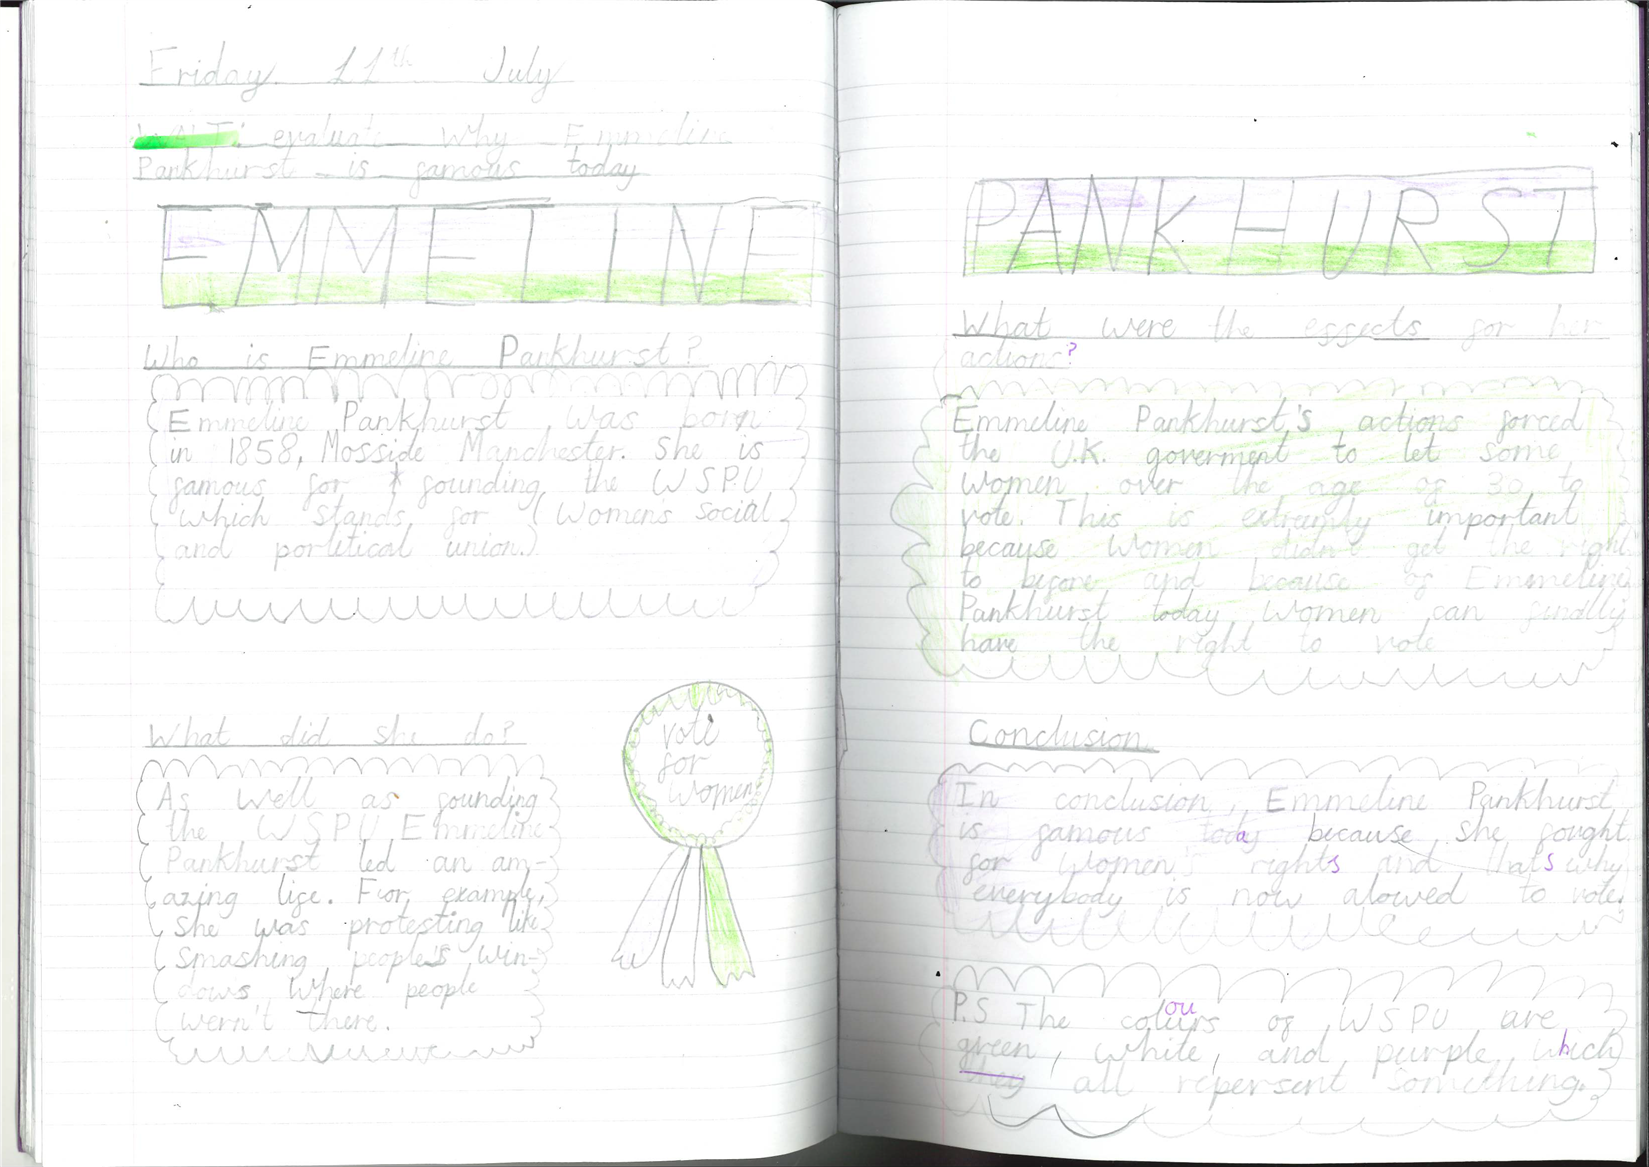 Friday 11th July
WALT: evaluate why Emmeline
Pankhurst is famous today
EMMELINE
Who is Emmeline Pankhurst?
Emmeline Pankhurst was born
in 1858, Mosside Manchester. She is
famous for founding the WSPU
which stands for (Women's social
and portetical union.)
What did she do?
As well as founding
the WSPU Emmeline
Pankhurst led an am-
azing life. For example,
she was protesting like
smashing people's win-
dows where people
wern't there.
vote
for
women
PANKHURST
What were the effects for her
actions?
Emmeline Pankhurst's actions forced
the U.K. goverment to let some
women over the age of 30 to
vote. This is extremly important
because women didn't get the right
to before and because of Emmeline
Pankhurst today women can finally
have the right to vote
Conclusion
In conclusion, Emmeline Pankhurst
is famous today because she fought
for women's rights and thats why
everybody is now alowed to vote.
P.S The colours of WSPU are
green, white, and purple, which
they all repersent something.